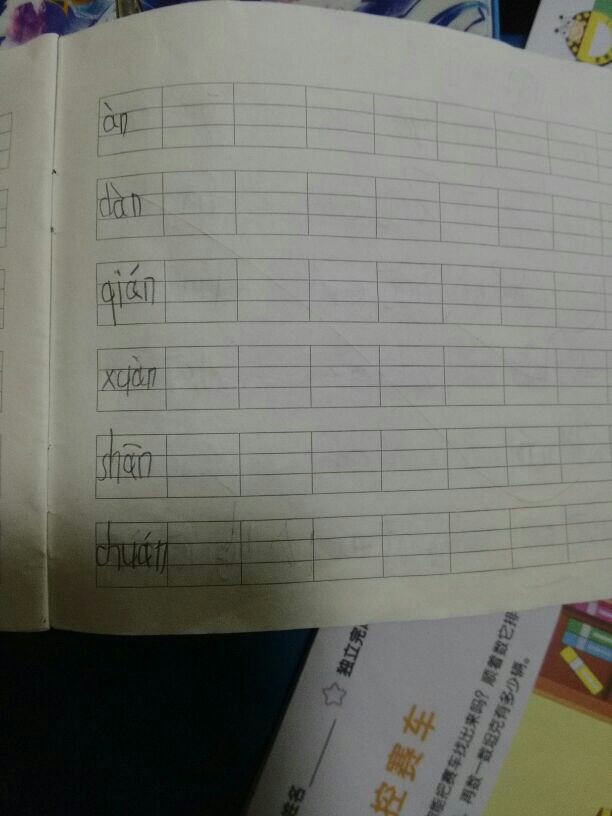 àn
dàn
qián
xuàn
shān
chuán
独立完
姓名
控赛车
能把赛车找出来吗？顺着数它排
再数一数坦克有多少辆。